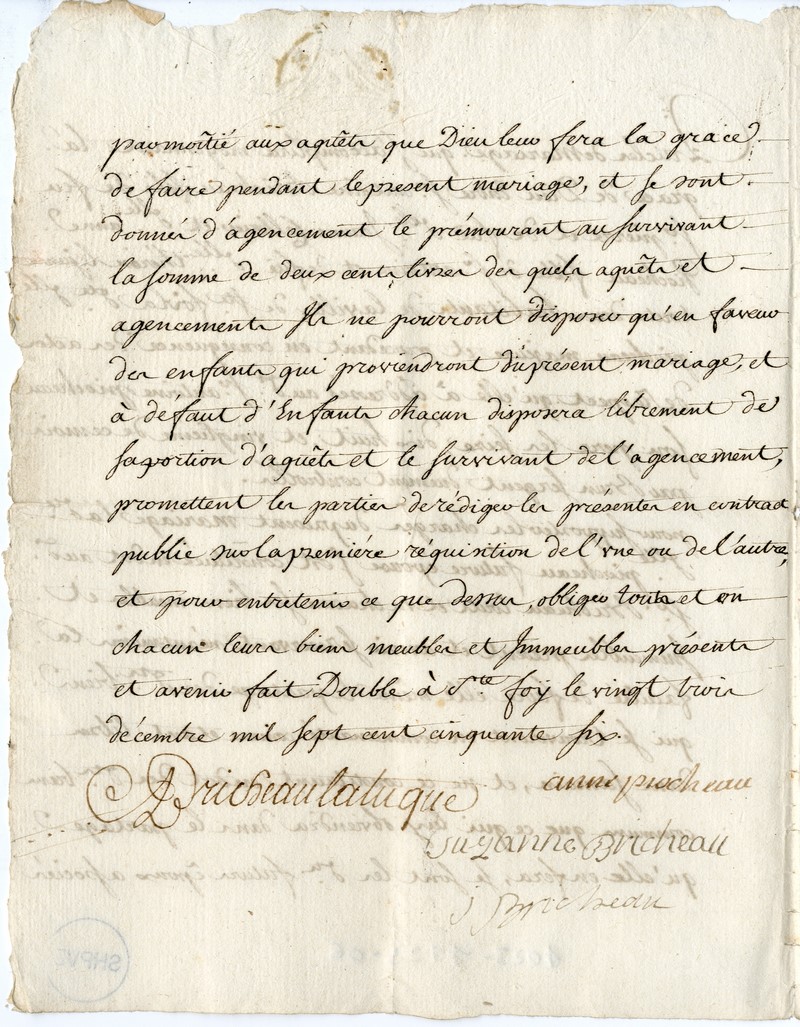 par moitié aux aqûets que Dieu leur fera la grace
de faire pendant le present mariage, et se sont
donnés d'agencement le prémourant au survivant
la somme de deux cents livres des quels aquêts et
agencements Ils ne pourront disposer qu'en faveur
des enfants qui proviendront du présent mariage, et
à défaut d'Enfants chacun disposera librement de
sa portion d'aquêts et le survivant de l'agencement,
promettent les parties de rédiger les présentes en contract
public sur la premiére réquisition de l'vne ou de l'autre,
et pour entretenir ce que dessus, obliger touts et on
chacun leurs biens meubles et Immeubles présents
et avenir fait Double à Ste. foÿ le vingt trois
décembre mil sept cent cinquante six.
Bricheau laluque
anne pucheau
Suzanne Bricheau
j Bricheau
SHPVD